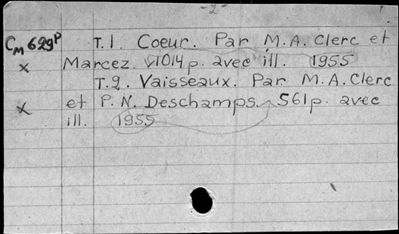 -2-
CM 629P T.1. Coeur. Par M.A. Clerc et
x Marcez. 1014 p. avec ill. 1955
T.2. Vaisseaux. Par M.A. Clerc
x et P.N. Deschamps. 561 p. avec
ill. 1955